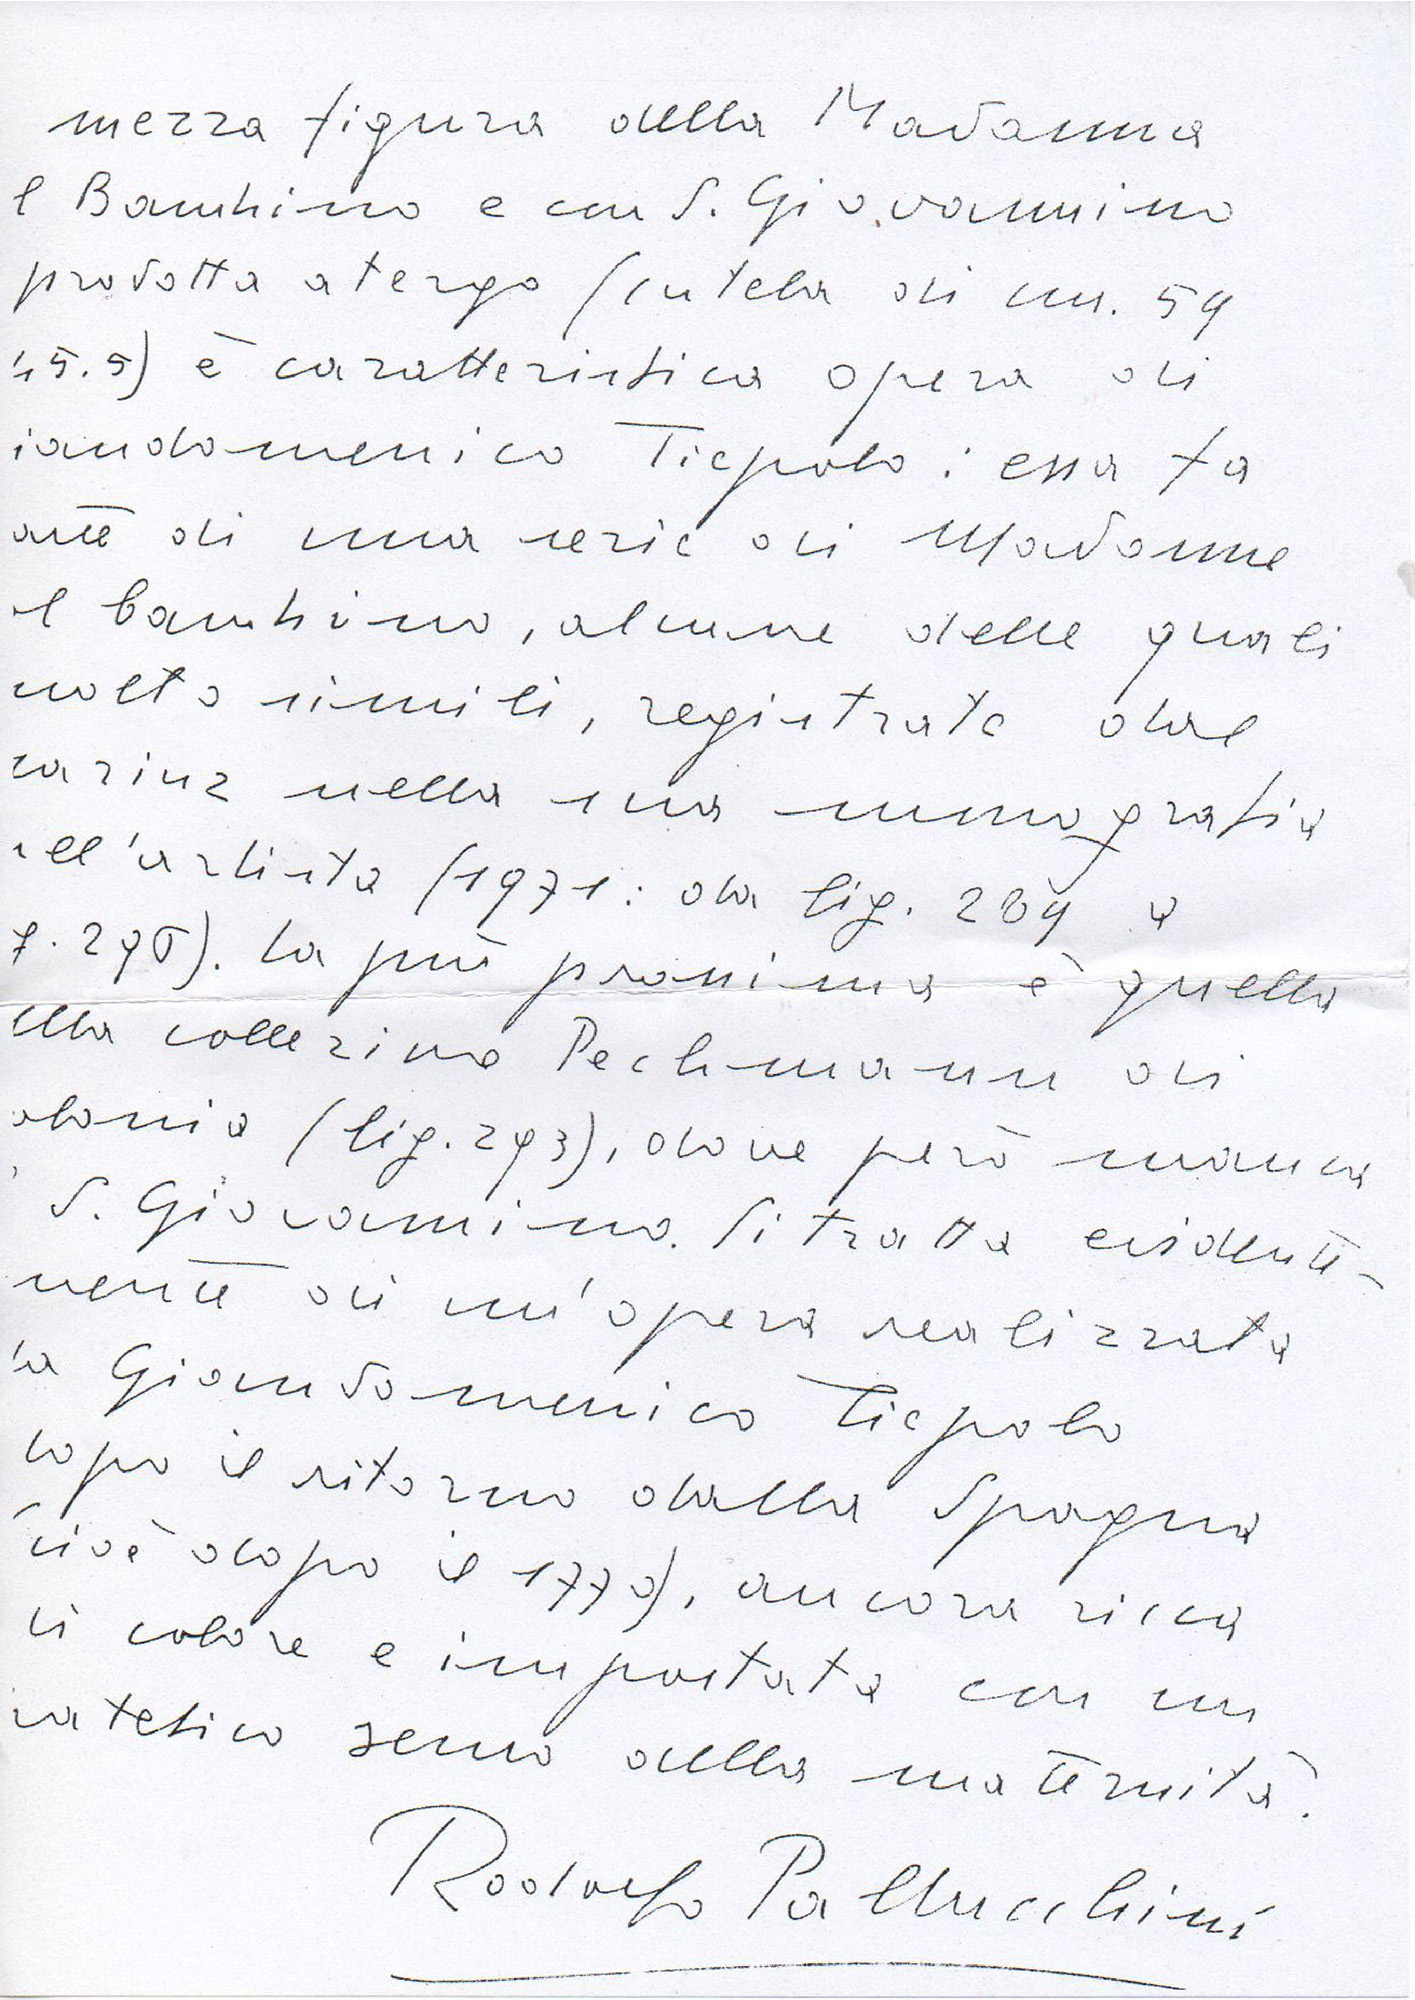 mezza figura della Madonna
l Bambino e con S. Giovannino
prodotta a tergo (su tela di cm. 59
45.5) è caratteristica opera di
iandomenico Tiepolo: essa fa
arte di una serie di Madonne
l bambino, alcune delle quali
molto simili, registrate dal
ariuz nella sua monografia
ell'artista (1971: da fig. 289 a
f. 298). La più prossima è quella
ella collezione Pechmann di
olonia (fig. 293), dove però manca
S. Giovannino. Si tratta evidente-
mente di un'opera realizzata
a Giandomenico Tiepolo
dopo il ritorno dalla Spagna
(cioè dopo il 1770), ancora ricca
di colore e impostata con un
patetico senso della maternità.
Rodolfo Pallucchini